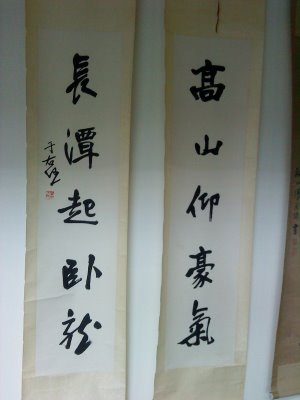 高山仰豪氣
長潭起臥龍
于右任